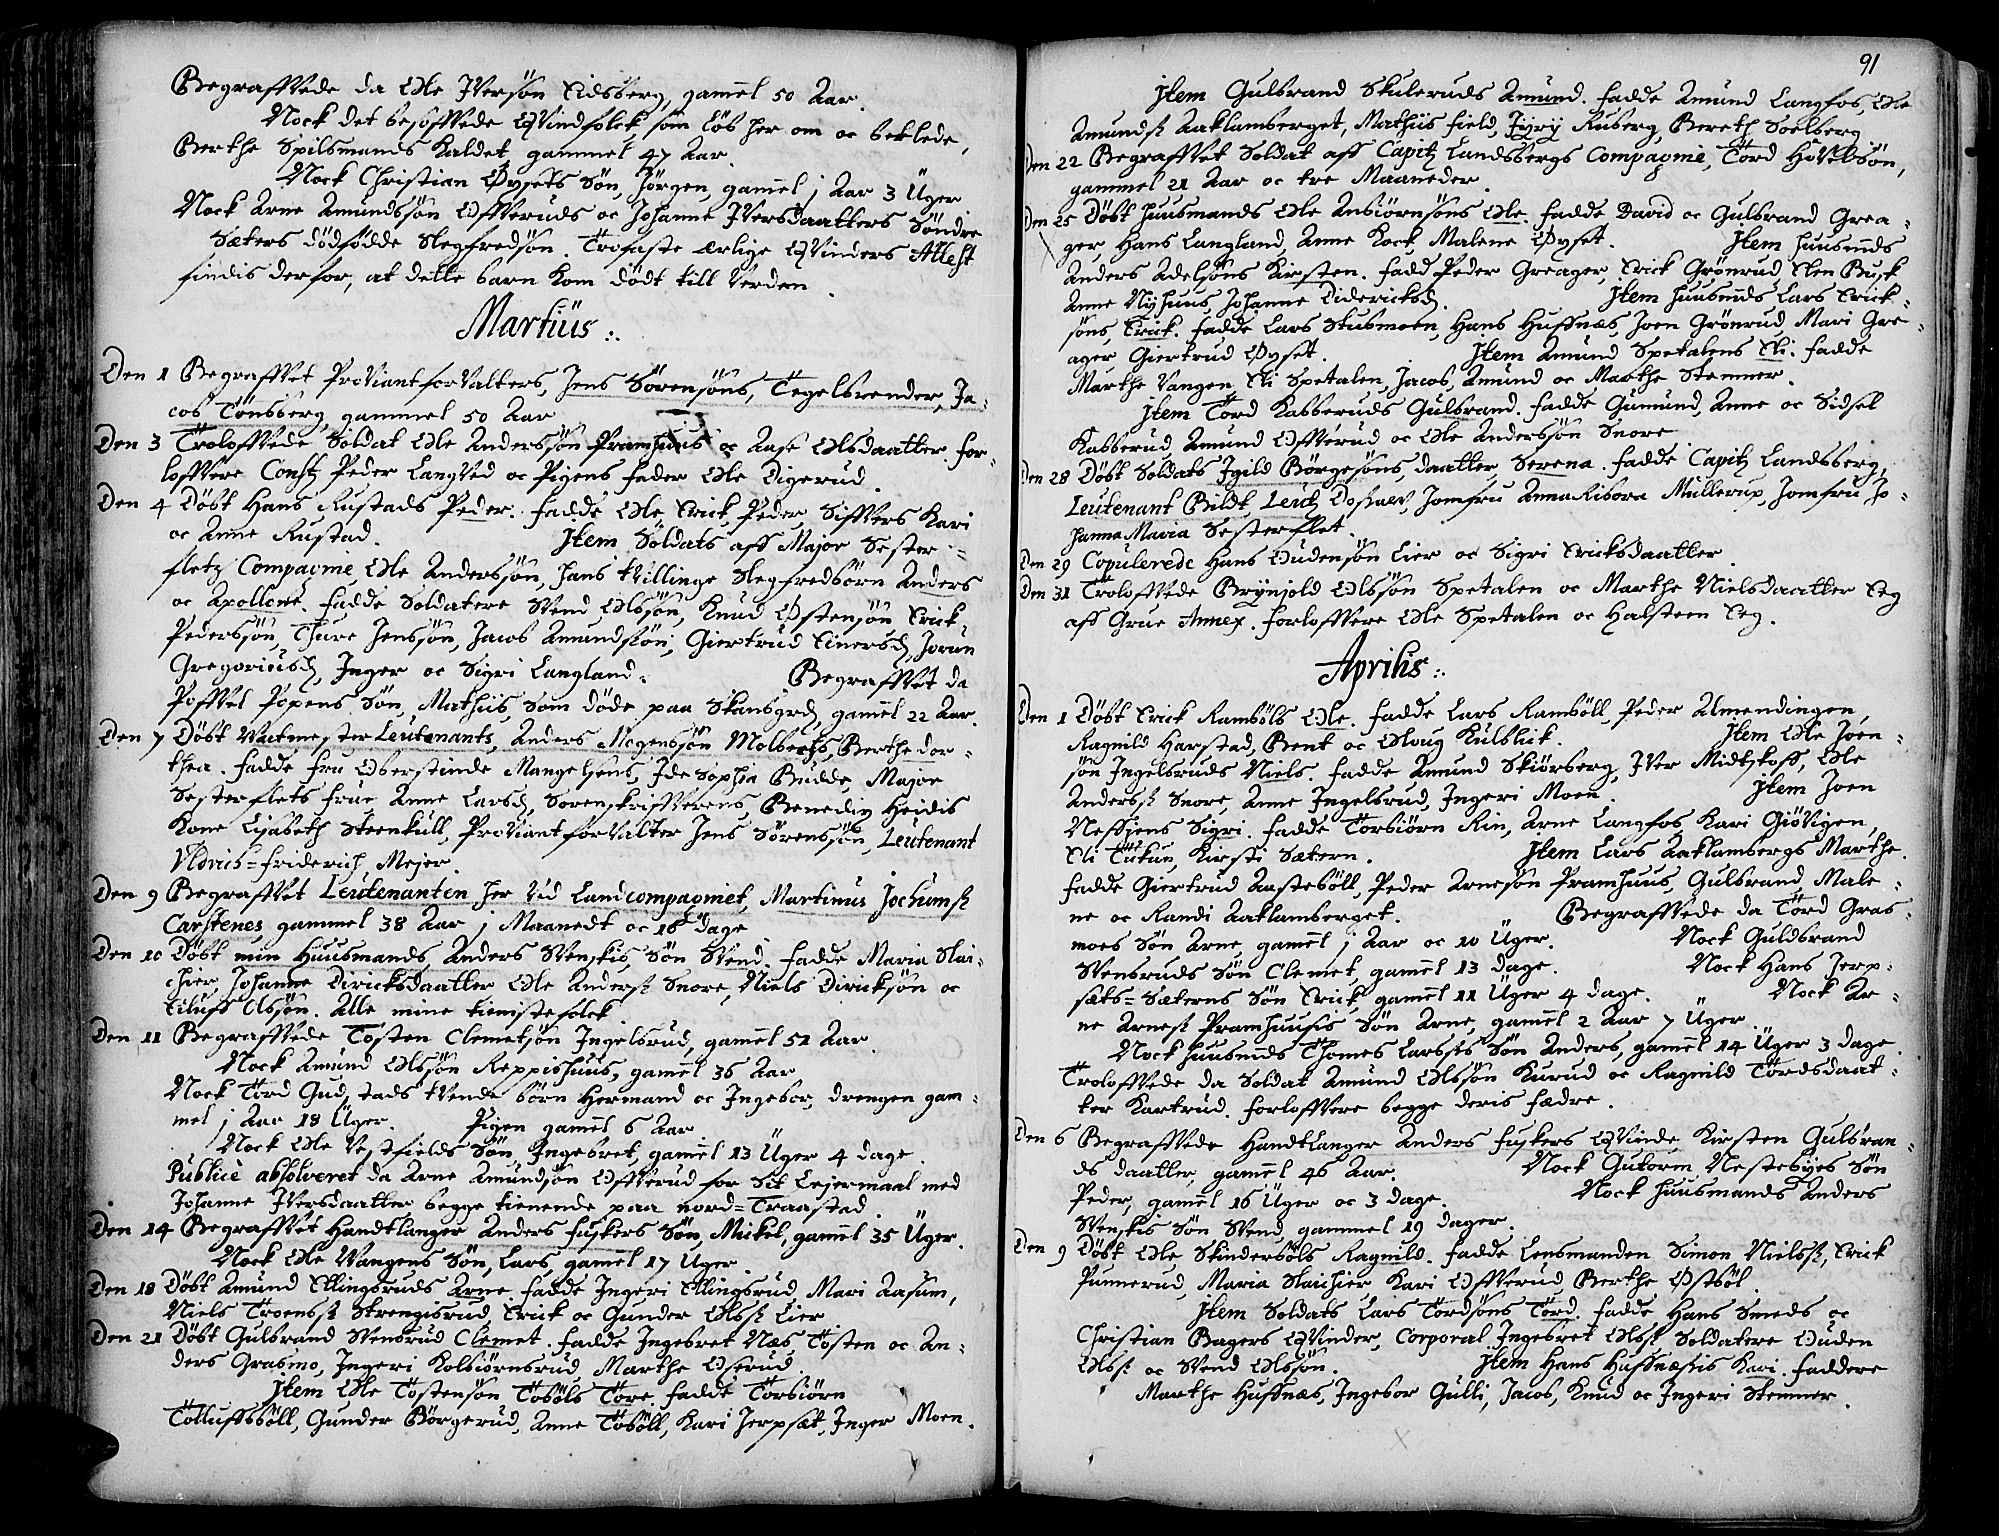 Begraffvede da Ole Iversøn Eidsberg, gamel 50 Aar.
Nock det besoffvede Qvindfolck, som løb her om oc beklede,
Berthe Spilsmands kaldet gammel 47 Aar.
Nock Christian Øysets Søn, Jørgen, gamel j Aar 3 Uger
Nock Arne Amundssøn Offveruds oc Johanne Iversdaatters Søndre
Sæters dødfødde Slegfredsøn. Trofaste ærlige Qvinders Attest
findis derfor, at dette barn kom dødt till Verden.
Martius :.
Den 1 Begraffvet Proviantforvalters, Jens Sørensøns, Tegelbrender, Ja-
cob Tønsberg, gammel 50 Aar
Den 3 Troloffvede Soldat Ole Anderssøn Pramhuus oc Aase Olsdaatter. for-
loffvere Const: Peder Langved oc Pigens fader Ole Digerud.
Den 4 Døbt Hans Rustads Peder. Fadde Ole Erick, Peder, Siffvers Kari
oc Anne Rustad. Item Soldats aff Major Sester-
fletz Compagnie, Ole Anderssøn, hans tvillinge Slegfredbørn Anders
oc Apollone. Fadde Soldatere Svend Olssøn, Knud Østensøn Erick
Pederssøn, Thure Jenssøn, Jacob Amundsøn, Giertrud Einersd, Jorun
Gregoriusd, Inger oc Sigri Langland. Begraffvet da
Poffvel Popens Søn, Mathiis, som døde paa Skansgrd, gamel 22 Aar.
Den 7 Døbt Vactmester Leutenants, Anders Mogenssøn Molbechs, Berthe dor-
thea. Fadde fru Oberstinde Mangelsens, Ide Sophia Budde, Major
Sesterflets frue Anne Larsd, Sorenskriffverens, Benedix Heidis
Kone Lisabeth Steenkull, Proviantforvalter Jens Sørenssøn, Leutenant
Vldrich-friderich Mejer.
Den 9 Begraffvet Leutenanten her ved Landcompagniet, Martinus Jochumss
Carstenes, gammel 38 Aar j Maanedt oc 18 dage
Den 10 Døbt min Huusmands, Anders Svenskis, Søn Svend. Fadde Maria Slai-
chier, Johanne Diricksdaatter Ole Anderss Snore, Niels Diricksøn oc
Eiluff Olssøn. Alle mine tienistefolck
Den 11 Begraffvede Tosten Clemetsøn Ingelsrud, gamel 51 Aar.
Nock Amund Olssøn Reppishuus, gamel 36 Aar
Nock Tord Gudstads tvende børn Hermand oc Ingebor, drengen gam-
mel j Aar 18 Uger. Pigen gamel 6 Aar
Nock Ole Vestfields Søn, Ingebret, gamel 13 Uger 4 dage.
Publicè absolveret da Arne Amundsøn Offverud for Sit Leiermaal med
Johanne Iversdaatter begge tienende paa nord-Traastad.
Den 14 Begraffvet Handtlanger Anders Fuskers Søn, Mickel, gamel 35 Uger.
Nock Ole Vangens Søn, Lars, gamel 17 Uger.
Den 18 Døbt Amund Ellingsruds Arne. Fadde Ingeri Ellingsrud, Mari Aasum,
Niels Troenss Strengisrud, Erick oc Gunder Olss Lier
Den 21 Døbt Gulbrand Svensrud Clemet. Fadde Ingebret Næs, Tosten oc An-
ders Grasmo, Ingeri Kolbiørnsrud, Marthe Oserud.
Item Ole Tostensøn Tobøls Tore. Fadde Torbiørn
Tolluffsbøll, Gunder Børgerud, Anne Tobøll, Kari Jerpset, Inger Moen.
91
Item Gulbrand Skuleruds Amund. Fadde Amund Langfos, Ole
Amundss Aaklamberget, Mathiis field, Jyry Ruberg, Bereth Soelberg
Den 22 Begraffvet Soldat aff Capitz Landsbergs Compagnie, Tord Hovelsøn,
gammel 21 Aar oc tre Maaneder.
Den 25 Døbt Huusmands Ole Ansiørnsøns Ole. Fadde David oc Gulbrand Grea-
ger, Hans Langland, Anne Kock, Malene Øyset. Item Huusmds
Anders Adelsøns Kirsten. Fadd Peder Greager, Erick Grønrud, Sten Busk
Anne Nyhuus, Johanne Diedericksd. Item Huusmds Lars Erick-
søns, Erick. Fadde Lars Stubmoen, Hans Huffnæs, Joen Grønrud, Mari Gre-
ager Giertrud Øyset. Item Amund Spetalens Eli. Fadde
Marthe Vangen, Eli Spetalen, Jacob, Amund oc Marthe Stemner.
Item Tord Kabberuds Gulbrand. Fadde Gumund, Anne oc Sidsel
Kabberud, Amund Offverud oc Ole Anderssøn Snore
Den 28 Døbt Soldats Igild Børgesøns, daatter, Serena. Fadde Capitz Landsberg,
Leutenant Bildt, Leut Dossaer, Jomfru Anna Risora Mullerup, Jomfru Jo-
hanna Maria Sesterflet.
Den 29 Copulerede Hans Oudensøn Lier oc Sigri Ericksdaatter.
Den 31 Troloffvede Brynjold Olssøn Spetalen oc Marthe Nielsdaatter Eeg
aff Grue Annex. Forloffvere Ole Spetalen oc Halsteen Eeg.
Aprilis :.
Den 1 Døbt Erick Rambøls Ole. Fadde Lars Rambøll, Peder Almendingen,
Ragnild Harstad, Bent oc Oloug Kulblick. Item Ole Joen-
søn Ingelsruds Niels. Fadde Amund Skiørberg, Iver Midtskoff, Ole
Anderss Snore, Anne Ingelsrud, Ingeri Moen. Item Joen
Nessiens Sigri. Fadde Torbiørn Rin, Arne Langfos, Kari Giøvigen,
Eli Tukun, Kirsti Sætern. Item Lars Aaklambergs Marthe.
Fadde Giertrud Aastebøll, Peder Arnesøn Pramhuus, Gulbrand, Male-
ne oc Randi Aaklamberget. Begraffvede da Tord Gras-
moes Søn Arne, gamel j Aar oc 10 Uger. Nock Guldbrand
Svensruds Søn Clemet, gamel 13 dage. Nock Hans Jerp-
sæts-Sæterns Søn Erick, gamel 11 Uger 4 dage. Nock Ar-
ne Arness Pramhuusis Søn Arne, gamel 2 Aar 7 Uger.
Nock Huusmds Thomes Larssis Søn Anders, gamel 14 Uger 3 dage.
Troloffvede da Soldat Amund Olssøn Kurud oc Ragnild Tordsdaat-
ter Kartrud. Forloffvere begge deris fædre.
Den 6 Begraffvede Handtlanger Anders Fuskers Qvinde Kirsten Gulbran-
ds daatter, gamel 46 Aar. Nock Gutorm Nestebyes Søn
Peder, gamel 16 Uger oc 3 dage. Nock Huusmands Anders
Svenskis Søn Svend, gammel 19 dager.
Den 9 Døbt Ole Skindersbøls Ragnild. Fadde Lensmanden Simon Nielss, Erick
Punnerud, Maria Slaichier Kari Offverud Berthe Østbøl.
Item Soldats Lars Tordsøns Tord. Fadde Hans Smeds oc
Christian Bagers Qvinder, Corporal Ingebret Olss, Soldatere Ouden
Olss oc Svend Olssøn. Item Hans Huffnæssis Kari. Faddere
Marthe Huffnæs, Ingebor Gulli, Jacob, Knud oc Ingeri Stemner.